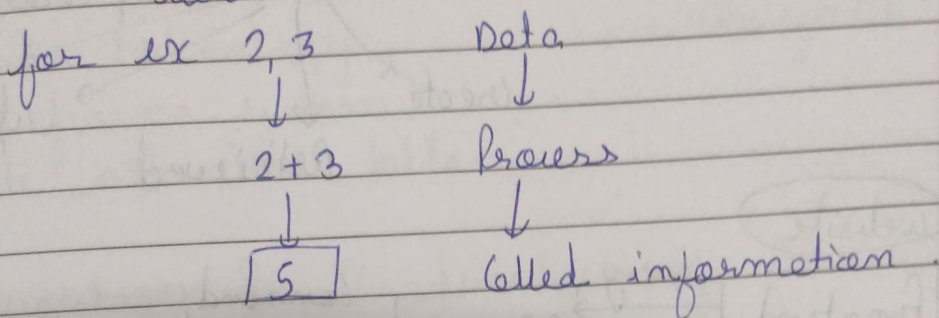 for ex 2,3 Data
↓ ↓
2+3 Process
↓ ↓
5 Called information